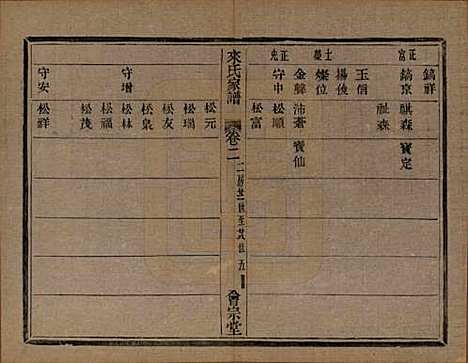 正富
鎬祥
鎬京
祺森
寶定
祉森
士學
玉信
楊俊
燦位
金鋒
沛蒼
寶仙
正兆
守中
松順
松富
來氏家譜
卷二
二房廿一世至廿五世
五
會宗堂
松元
松瑞
松友
松梟
守增
松林
松福
松茂
守安
松祥